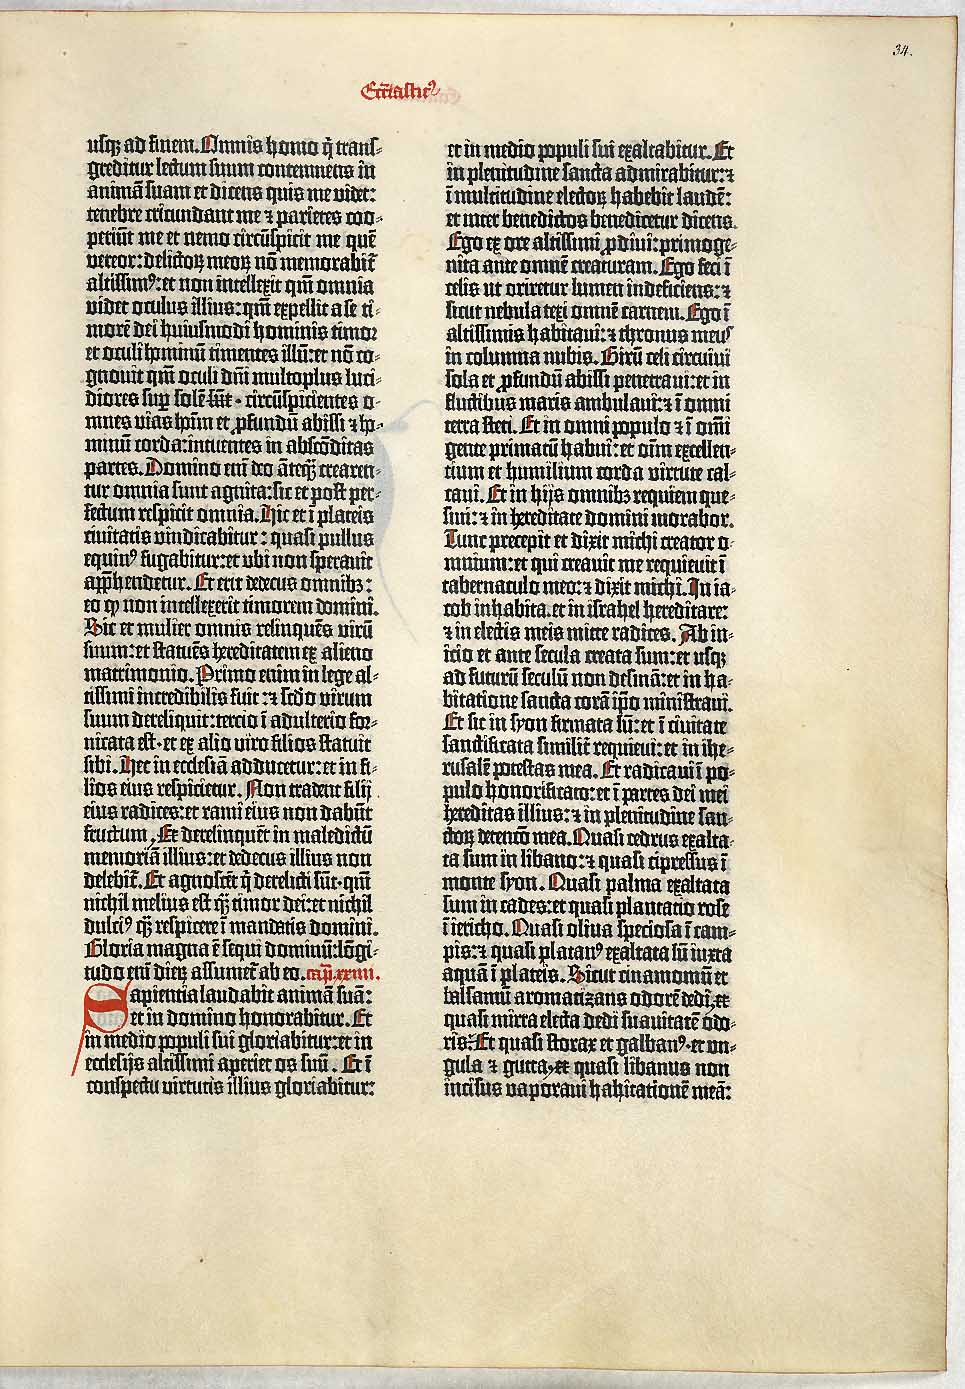 34.
Eccl̅iastic⁹
usq ꝫ ad finem. Omnis homo q̅ trans-
greditur lectum suum contemnens in
animā suam et dicens quis me videt:
tenebre circundant me ⁊ parietes coo-
periūt me et nemo circūspicit me quē
vereor: delictoꝝ meoꝝ nō memorabit̄
altissim⁹: et non intellexit qm̄ omnia
videt oculus illius: qm̄ expellit a se ti-
morē dei huiusmodi hominis timor
et oculi hominū timentes illū: et nō co-
gnouit qm̄ oculi dn̄i multoplus luci-
diores sup̱ solē sūt · circūspicientes o-
mnes vias hoīm et ꝓfundū abissi ⁊ ho-
minū corda: intuentes in abscōditas
partes. Domino eni̅ deo āteqꝫ̄ crearen-
tur omnia sunt agnita: sic et post per-
fectum respicit omnia. Hic et ī plateis
ciuitatis vindicabitur: quasi pullus
equin⁹ fugabitur: et ubi non sperauit
app̄hendetur. Et erit dedecus omnibꝫ:
eo ꝙ non intellexerit timorem domini.
Sic et mulier omnis relinquēs virū
suum: et statuēs hereditatem ex alieno
matrimonio. Primo enim in lege al-
tissimi incredibilis fuit: ⁊ scd̄o virum
suum dereliquit: tercio ī adulterio for-
nicata est · et ex alio viro filios statuit
sibi. Hec in ecclesiā adducetur: et in fi-
lios eius respicietur. Non tradent filij
eius radices: et rami eius non dabūt
fructum, Et derelinquēt in maledictū
memoriā illius: et dedecus illius non
delebit̄. Et agnoscēt q̄ derelicti sūt · qm̄
nichil melius est qꝫ̄ timor dei: et nichil
dulci⁹ qꝫ̄ respicere ī mandatis domini.
Gloria magna ē sequi dominū: lōgi-
tudo eni̅ dieꝝ assumet̄ ab eo. cap̄. xxiiii.
Sapientia laudabit animā suā:
et in domino honorabitur. Et
in medio populi sui gloriabitur: et in
ecclesijs altissimi aperiet os suū. Et ī
conspectu virtutis illius gloriabitur:
et in medio populi sui exaltabitur. Et
in plenitudine sancta admirabitur: ⁊
ī multitudine electoꝝ habebit laudē:
et inter benedictos benedicetur dicens.
Ego ex ore altissimi ꝓdiui: primoge-
nita ante omnē creaturam. Ego feci ī
celis ut oriretur lumen indeficiens: ⁊
sicut nebula texi omnē carnem. Ego ī
altissimis habitaui: ⁊ thronus meus
in columna nubis. Girū celi circuiui
sola et ꝓfundū abissi penetraui: et in
fluctibus maris ambulaui: ⁊ ī omni
terra steti. Et in omni populo ⁊ ī om̄i
gente primatū habui: et oīm excellen-
tium et humilium corda virtute cal-
caui. Et in hijs omnibꝫ requiem que-
siui: ⁊ in hereditate domini morabor.
Tunc precepit et dixit michi creator o-
mnium: et qui creauit me requieuit ī
tabernaculo meo: ⁊ dixit michi. In ia-
cob inhabita. et in israhel hereditare:
⁊ in electis meis mitte radices. Ab in-
icio et ante secula creata sum: et usqꝫ
ad futurū seculū non desinā: et in ha-
bitatione sancta corā ip̄o ministraui.
Et sic in syon firmata sū: et ī ciuitate
sanctificata similit̄ requieui: et in ihe-
rusalē potestas mea. Et radicaui ī po-
pulo honorificato: et ī partes dei mei
hereditas illius: ⁊ in plenitudine san-
ctoꝝ detentō mea. Quasi cedrus exalta-
ta sum in libano: ⁊ quasi cipressus ī
monte syon. Quasi palma exaltata
sum in cades: et quasi plantatio rose
ī iericho. Quasi oliua speciosa ī cam-
pis: ⁊ quasi platan⁹ exaltata sū iuxta
aquā ī plateis. Sicut cinamomū et
balsamū aromatizans odorē dedi, et
quasi mirra electa dedi suauitatē odo-
ris: Et quasi storax et galban⁹ · et un-
gula ⁊ gutta, et quasi libanus non
incisus vaporaui habitationē meā: